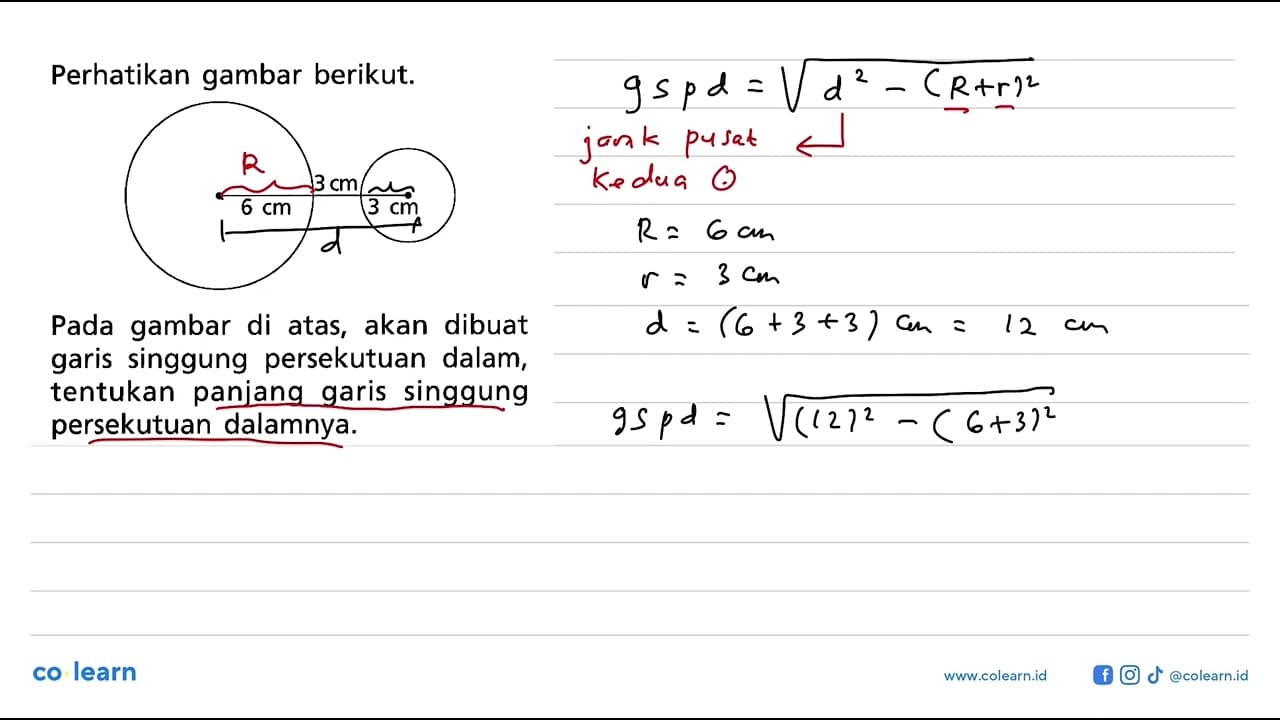 Perhatikan gambar berikut.
R
3 cm
6 cm
3 cm
d
Pada gambar di atas, akan dibuat
garis singgung persekutuan dalam,
tentukan panjang garis singgung
persekutuan dalamnya.
gspd = √d² - (R+r)²
jarak pusat
kedua ⊙
R = 6 cm
r = 3 cm
d = (6 + 3 + 3) cm = 12 cm
gspd = √(12)² - (6+3)²
co learn
www.colearn.id
@colearn.id